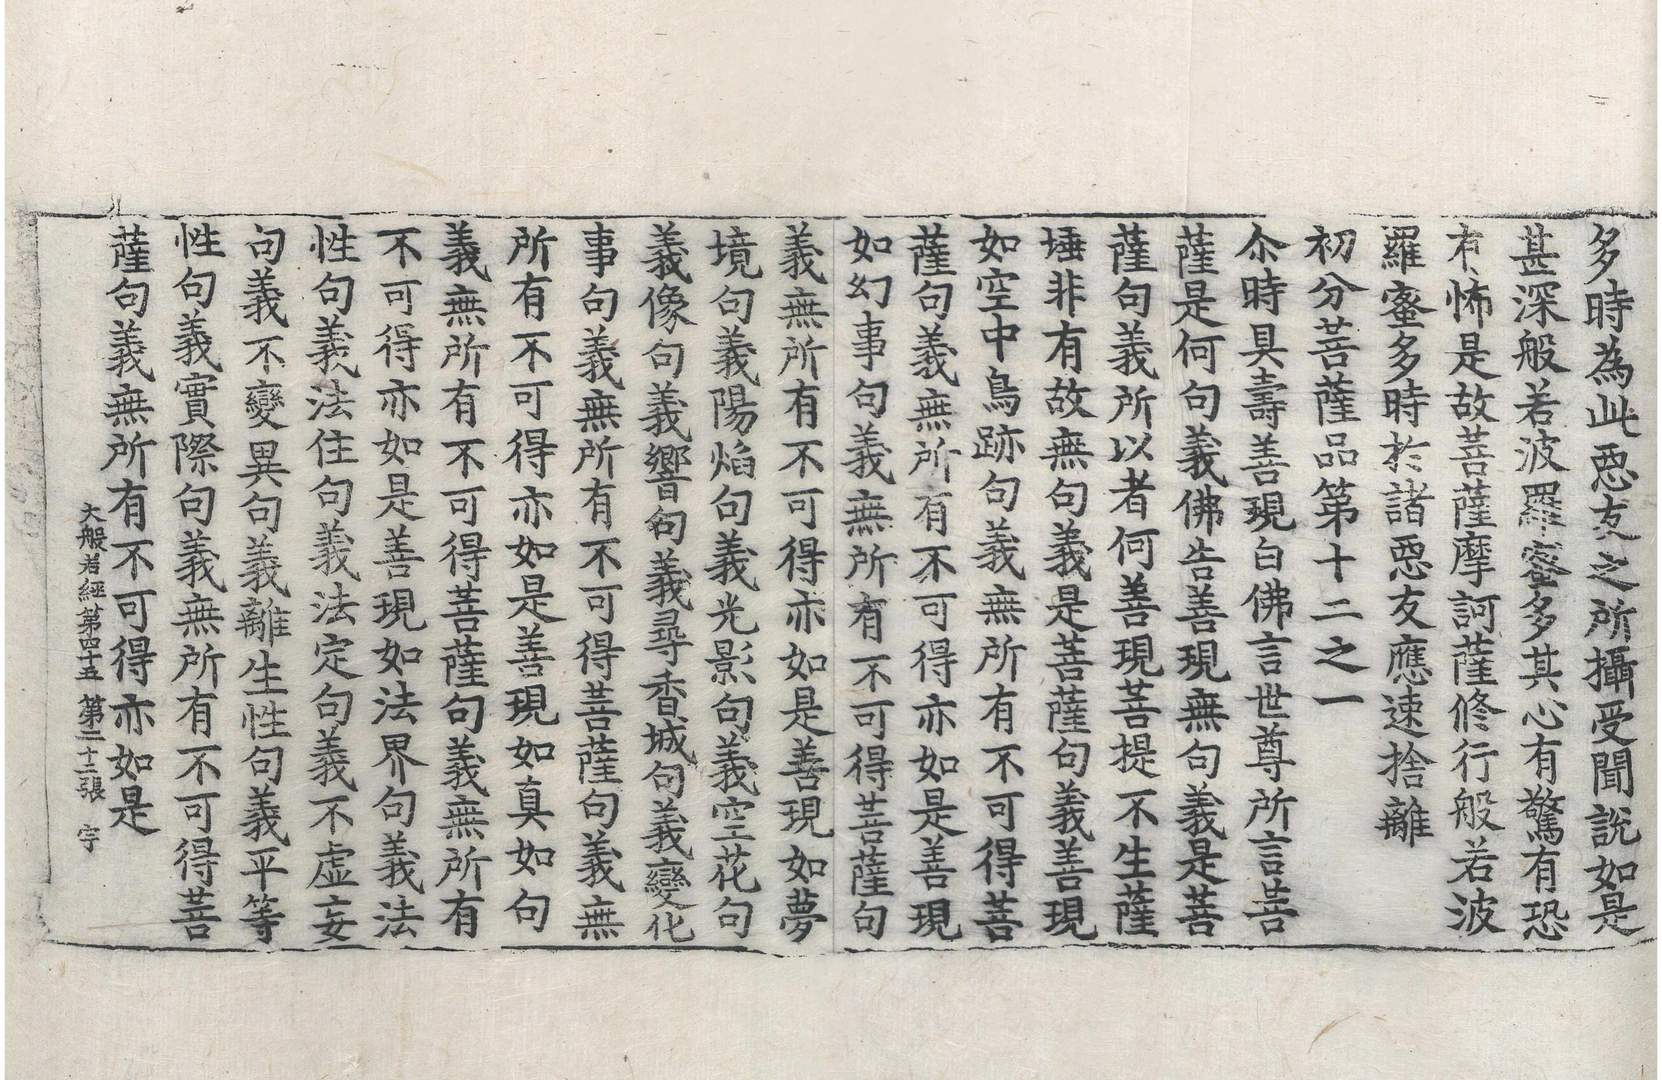 多時為此惡友之所攝受聞說如是
甚深般若波羅蜜多其心有驚有恐
有怖是故菩薩摩訶薩修行般若波
羅蜜多時於諸惡友應速捨離
初分菩薩品第十二之一
尒時具壽善現白佛言世尊所言菩
薩是何句義佛告善現無句義是菩
薩句義所以者何善現菩提不生薩
埵非有故無句義是菩薩句義善現
如空中鳥跡句義無所有不可得菩
薩句義無所有不可得亦如是善現
如幻事句義無所有不可得菩薩句
義無所有不可得亦如是善現如夢
境句義陽焰句義光影句義空花句
義像句義響句義尋香城句義變化
事句義無所有不可得菩薩句義無
所有不可得亦如是善現如真如句
義無所有不可得菩薩句義無所有
不可得亦如是善現如法界句義法
性句義法住句義法定句義不虛妄
句義不變異句義離生性句義平等
性句義實際句義無所有不可得菩
薩句義無所有不可得亦如是
大般若經第四十五 第二十二張 宇